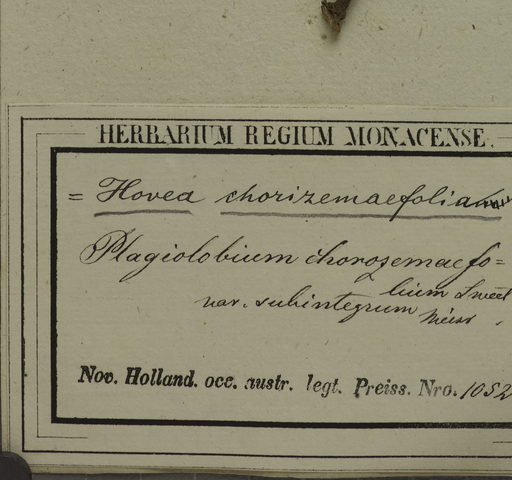 HERBARIUM REGIUM MONACENSE.
= Hovea chorizemaefolia
Plagiolobium chorozemaefo=
lium Sweet
var. subintegrum Meisn.
Nov. Holland. occ. austr. legt. Preiss. Nro. 1052